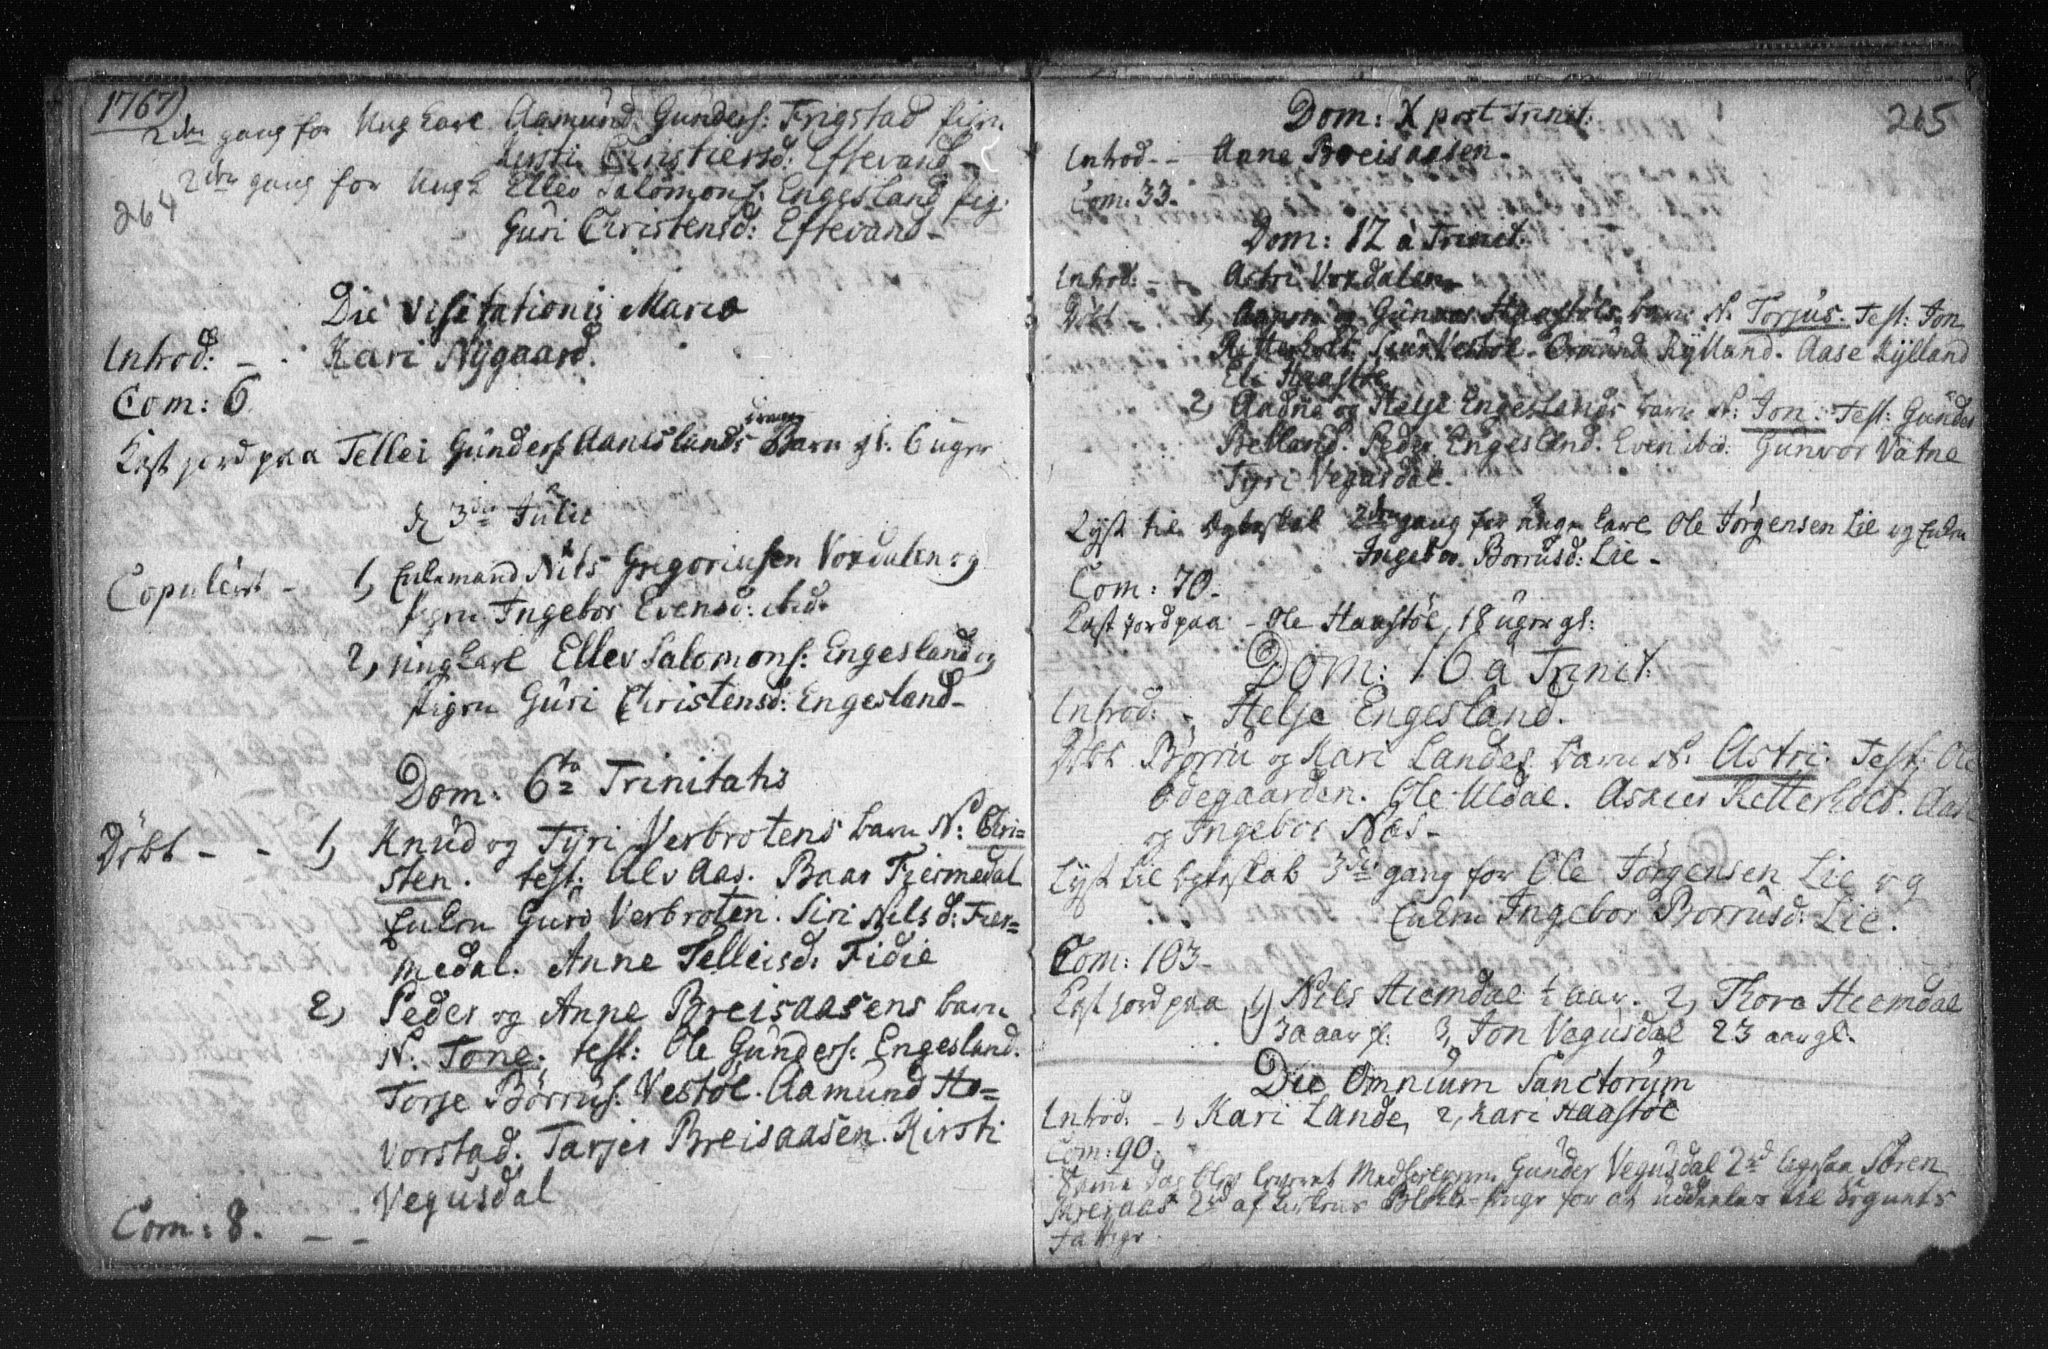 1767)
2den gang for Ung Karl Aamund Gunders: Frigstad pign
Kirsti Christensd: Eftevand
2den gang for Ungk Ellev Salomons: Engesland pig:
264
Guri Christensd: Eftevand
Die Visitationis Mariæ
Introd: - . Kari Nÿgaard.
Com: 6
drænge
Kast jord paa Tellei Gunders Aaneslands Barn gl: 6 uger
d 3die Julii
Copulert - 1, Enkemand Nils Gregoriusen Voxdalen og
pigen Ingebor Evensd: ibid.
2, ungkarl Ellev Salomons: Engesland og
pigen Guri Christensd: Engesland
Dom: 6ta Trinitatis
Döbt - - 1, Knud og Tyri Verbrotens barn N: Chri=
sten. test: Alv Aas. Baar Fiermedal
Enken Guro Verbroten. Siri Nilsd: Fier=
medal. Anne Telleisd: Fidie
2, Peder og Anne Breisaasens barn
N: Tone. test: Ole Gunders: Engesland.
Torje Börrus: Vestöl. Aamund Ho=
vorstad. Tarjer Breisaasen. Kirsti
Vegusdal
Com: 8. - -
265
Dom: X post Trinit:
Introd - - Anne Breisaasen.
Com: 33.
Dom: 12 à Trinit:
Introd: - Astri Voxdalen
Döbt - 1, og Gunvor Haastöls barn N: Torjus. Test: Jon
Retterholt Vestöl. Omund Kÿlland. Aase Kÿlland
Eli Haastöl
2, Aadne og Helje Engeslands barn N: Jon. Test: Gunder
Helland. Peder Engesland. Even ibid. Gunvor Vatne
Tyri Vegusdal.
Lyst til Egteskab 2den gang for unge karl Ole Jörgensen Lie og Enken
Ingebor Borrusd: Lie -
Com: 70.
Kast jord paa - Ole Haastöl 18 uger gl:
Dom: 16 à Trinit:
Introd: - Helje Engesland.
Döbt Börru og Kari Landes barn N: Astri. Test: Ole
Ödegaarden. Ole Uldal. Asmer Retterholt. Aase
og Ingebor Næs -
Lyst til Egteskab 3die gang for Ole Jörgensen Lie og
Enken Ingebor Borrusd: Lie.
Com: 103 -
Kast jord paa 1, Nils Hiemdal ½ aar. 2, Thora Heemdal
30 aar gl: 3, Jon Vegusdal 23 aar gl.
Die Omnium Sanctorum
Introd: - 1 Kari Lande, 2, Kari Haastöl
Com: 90.
Samme dag blev leveret Medhielperne Gunder Vegusdal 2rd ligesaa Sören
2rd af Kirkens Blok-penge for at uddeeles til Sognets
Fattige.